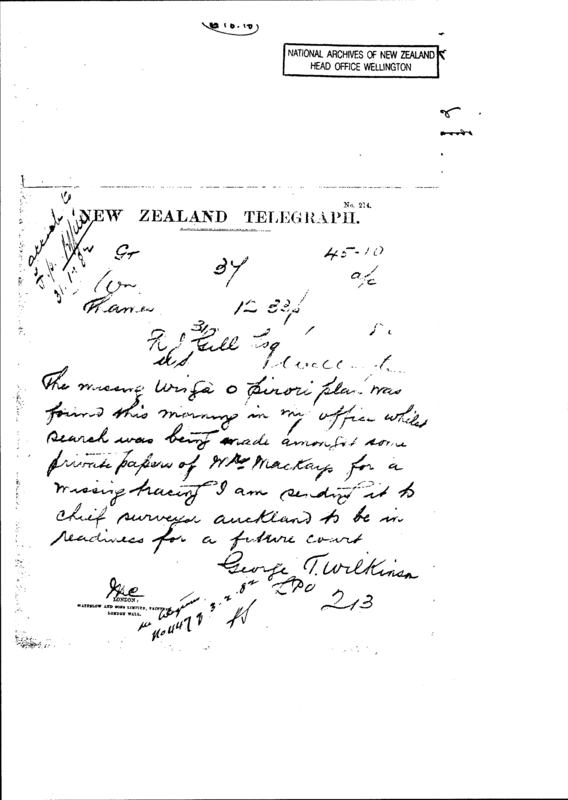 NATIONAL ARCHIVES OF NEW ZEALAND
HEAD OFFICE WELLINGTON
No. 214.
NEW ZEALAND TELEGRAPH.
31.1.82
Gr 37 45-10
a/c
Thames 12
R J Gill Esq
The missing o pirori plan was
found this morning in my office whilst
search was being made amongst some
private papers of Mackays for a
missing tracing I am sending it to
chief surveyor auckland to be in
readiness for a future court
George T. Wilkinson
LPO
213
LONDON:
WATERLOW AND SONS LIMITED, PRINTERS,
LONDON WALL.
3.2.82